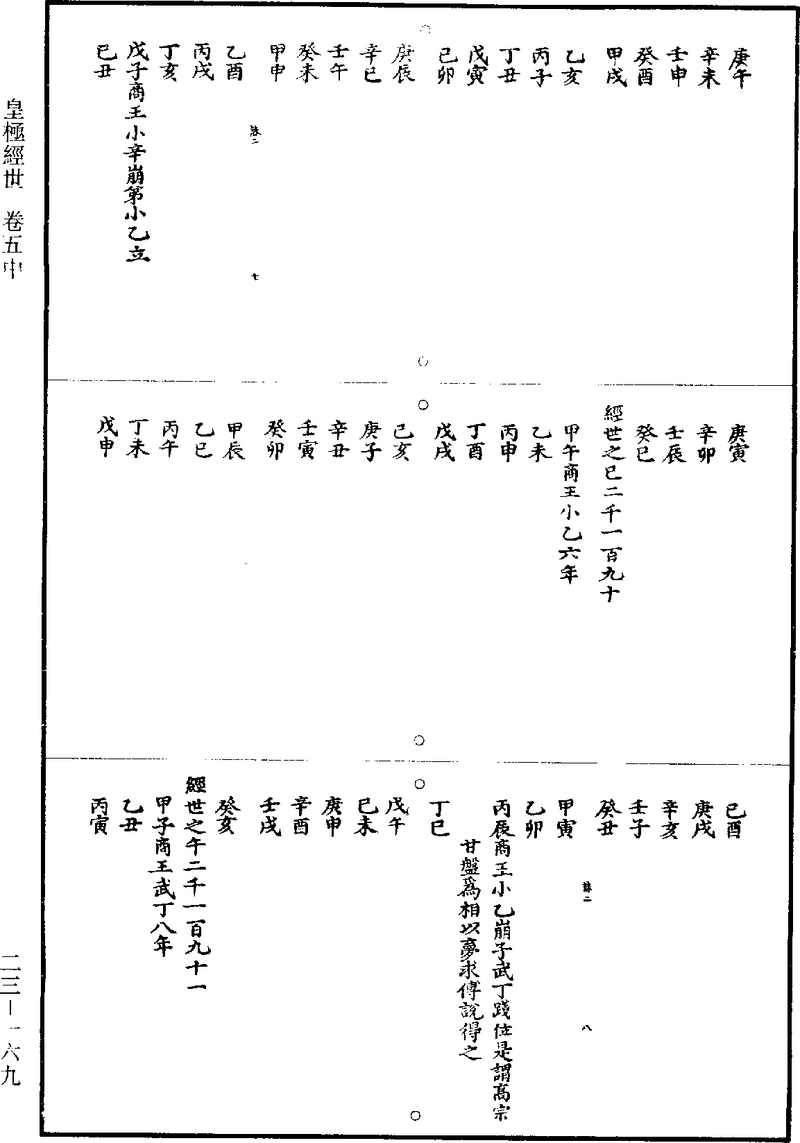 庚午
辛未
壬申
癸酉
甲戌
乙亥
丙子
丁丑
戊寅
己卯
庚辰
辛巳
壬午
癸未
甲申
乙酉
丙戌
丁亥
戊子商王小辛崩第小乙立
己丑
七
庚寅
辛卯
壬辰
癸巳
經世之巳二千一百九十
甲午商王小乙六年
乙未
丙申
丁酉
戊戌
己亥
庚子
辛丑
壬寅
癸卯
甲辰
乙巳
丙午
丁未
戊申
己酉
庚戌
辛亥
壬子
癸丑
八
甲寅
乙卯
丙辰商王小乙崩子武丁踐位是謂髙宗
甘盤爲相以夢求傅說得之
丁巳
戊午
己未
庚申
辛酉
壬戌
癸亥
經世之午二千一百九十一
甲子商王武丁八年
乙丑
丙寅
皇極經世 卷五中
二三－一六九